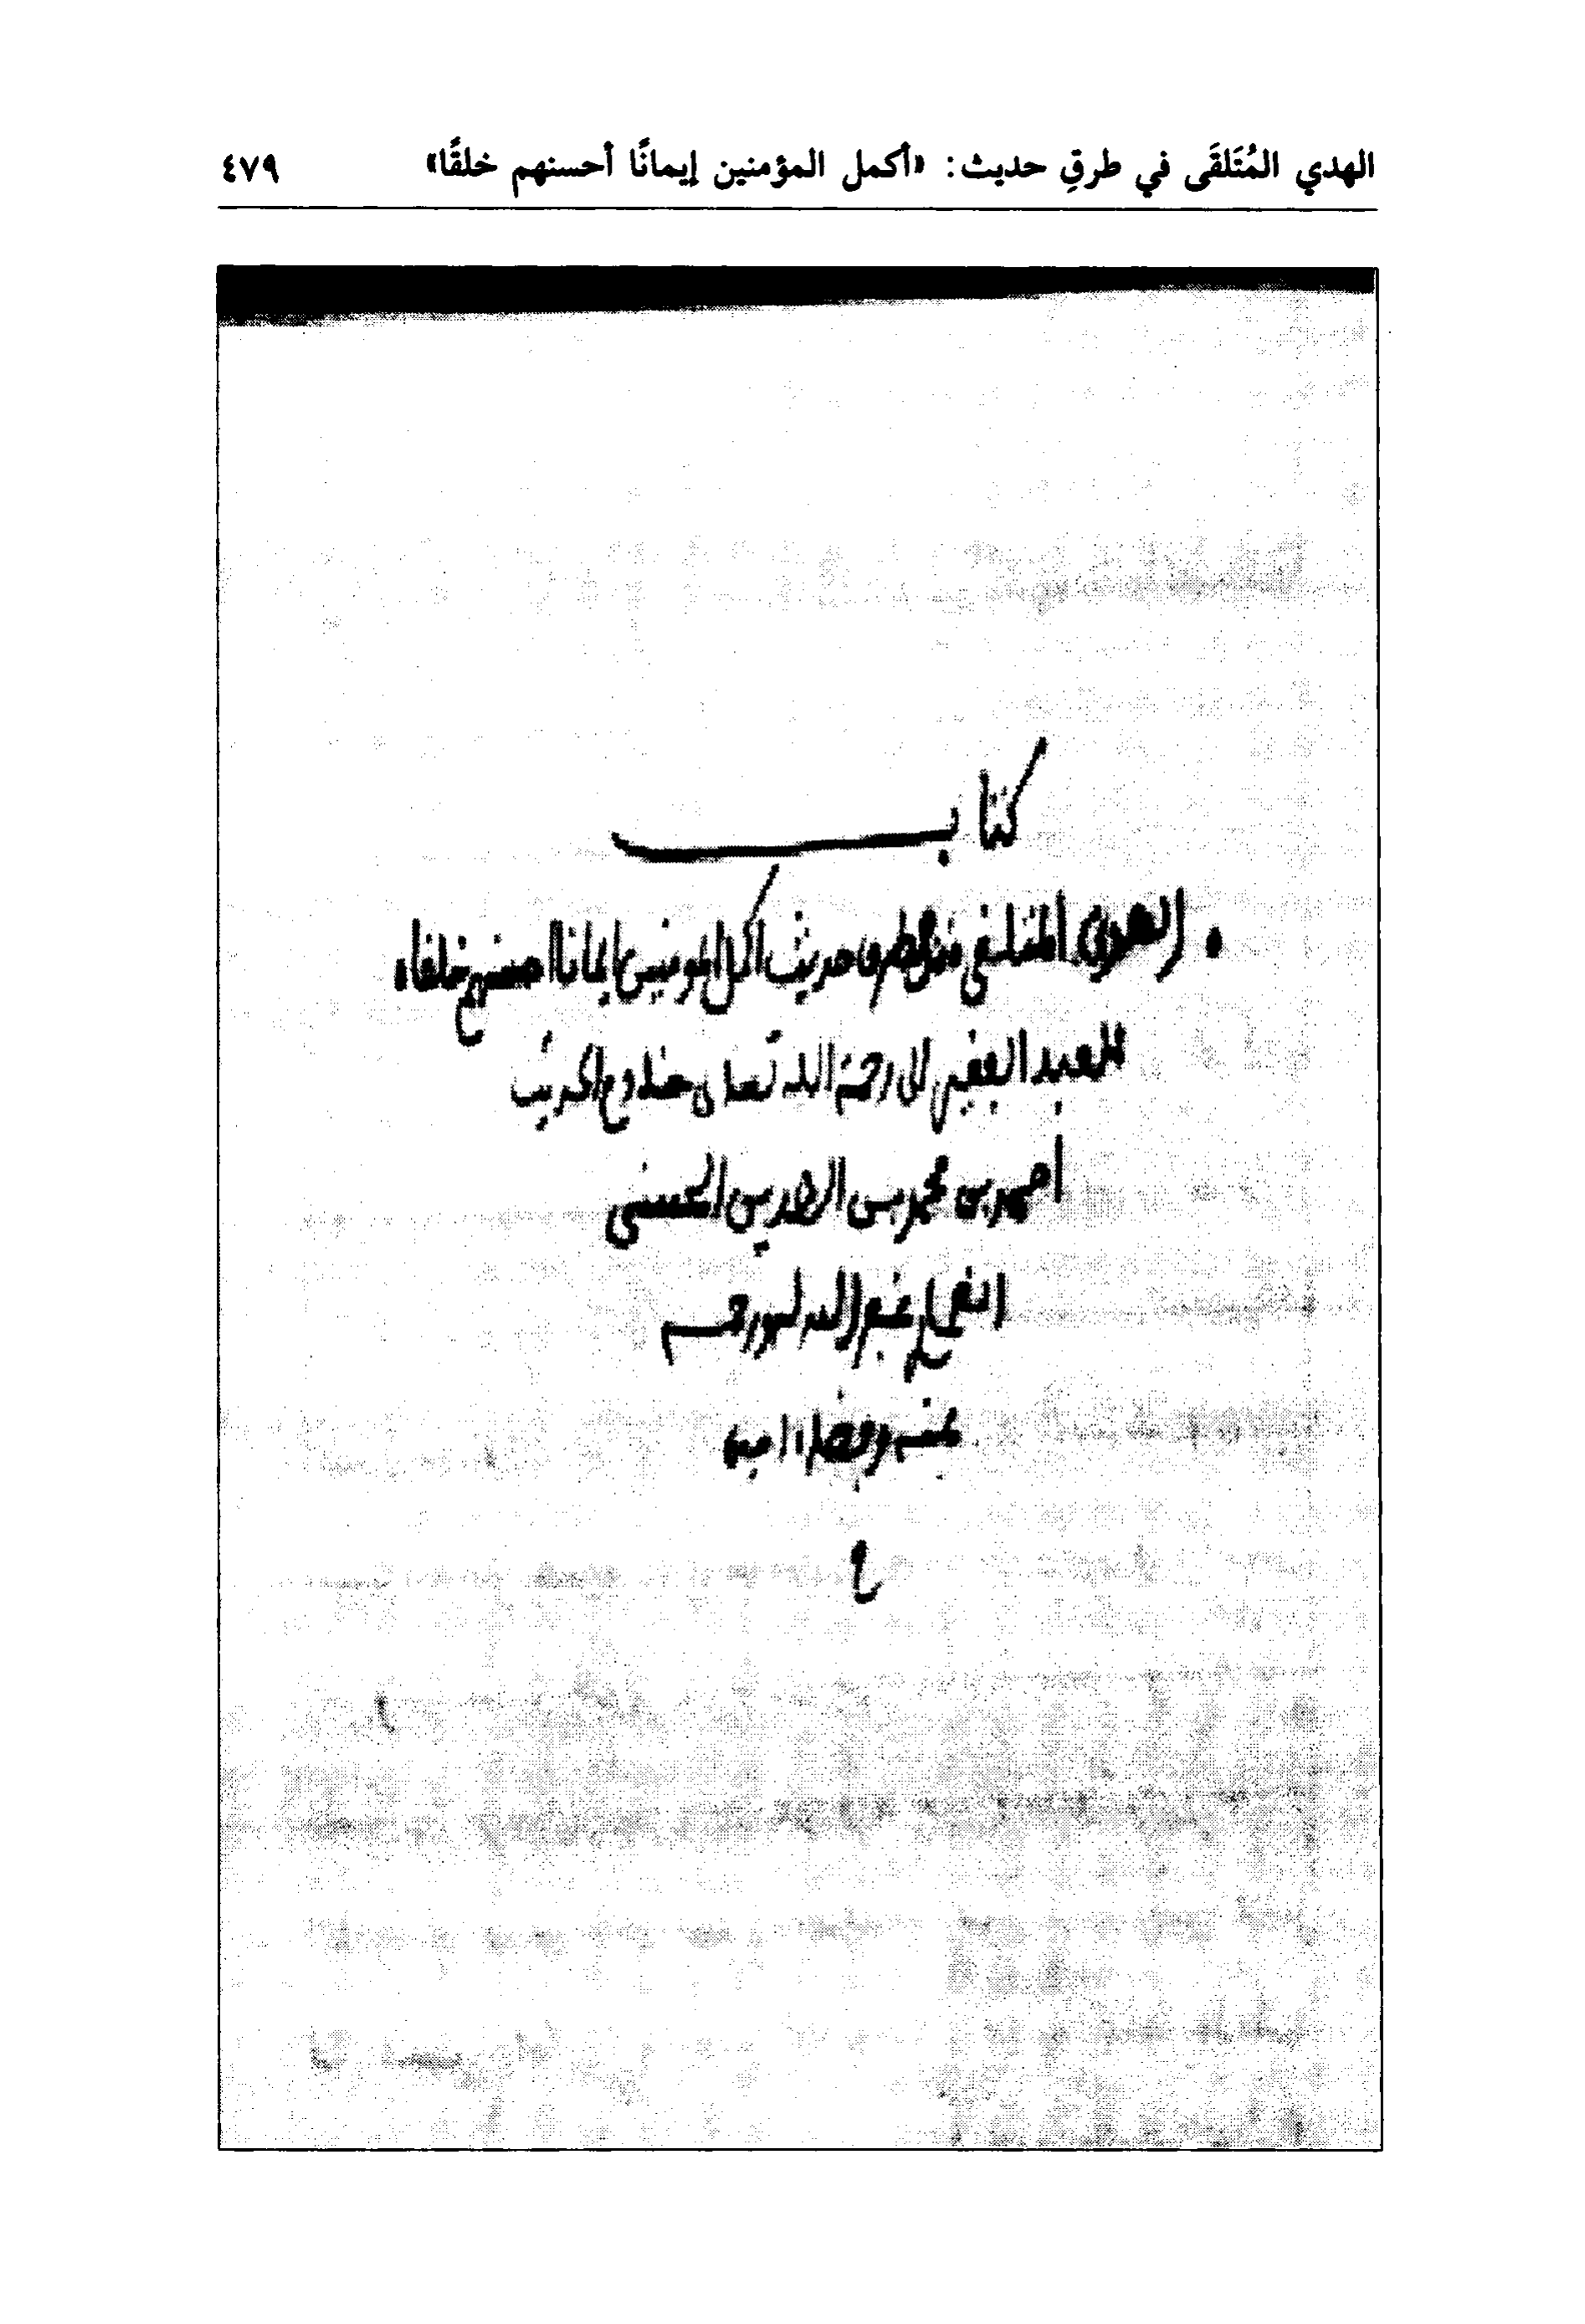 الهدي المُتَلقَى في طرقِ حديث: «أكمل المؤمنين إيمانًا أحسنهم خلقًا» ٤٧٩
كتاب
الهدي المتلقى في طرق حديث اكمل المومنين ايمانا احسنهم خلقا
للعبد الفقير الى رحمة الله تعلى خادم الحديث
احمد بن محمد بن الصديق الحسني
الغماري غفر الله له ورحمه
بمنه وفضله امين